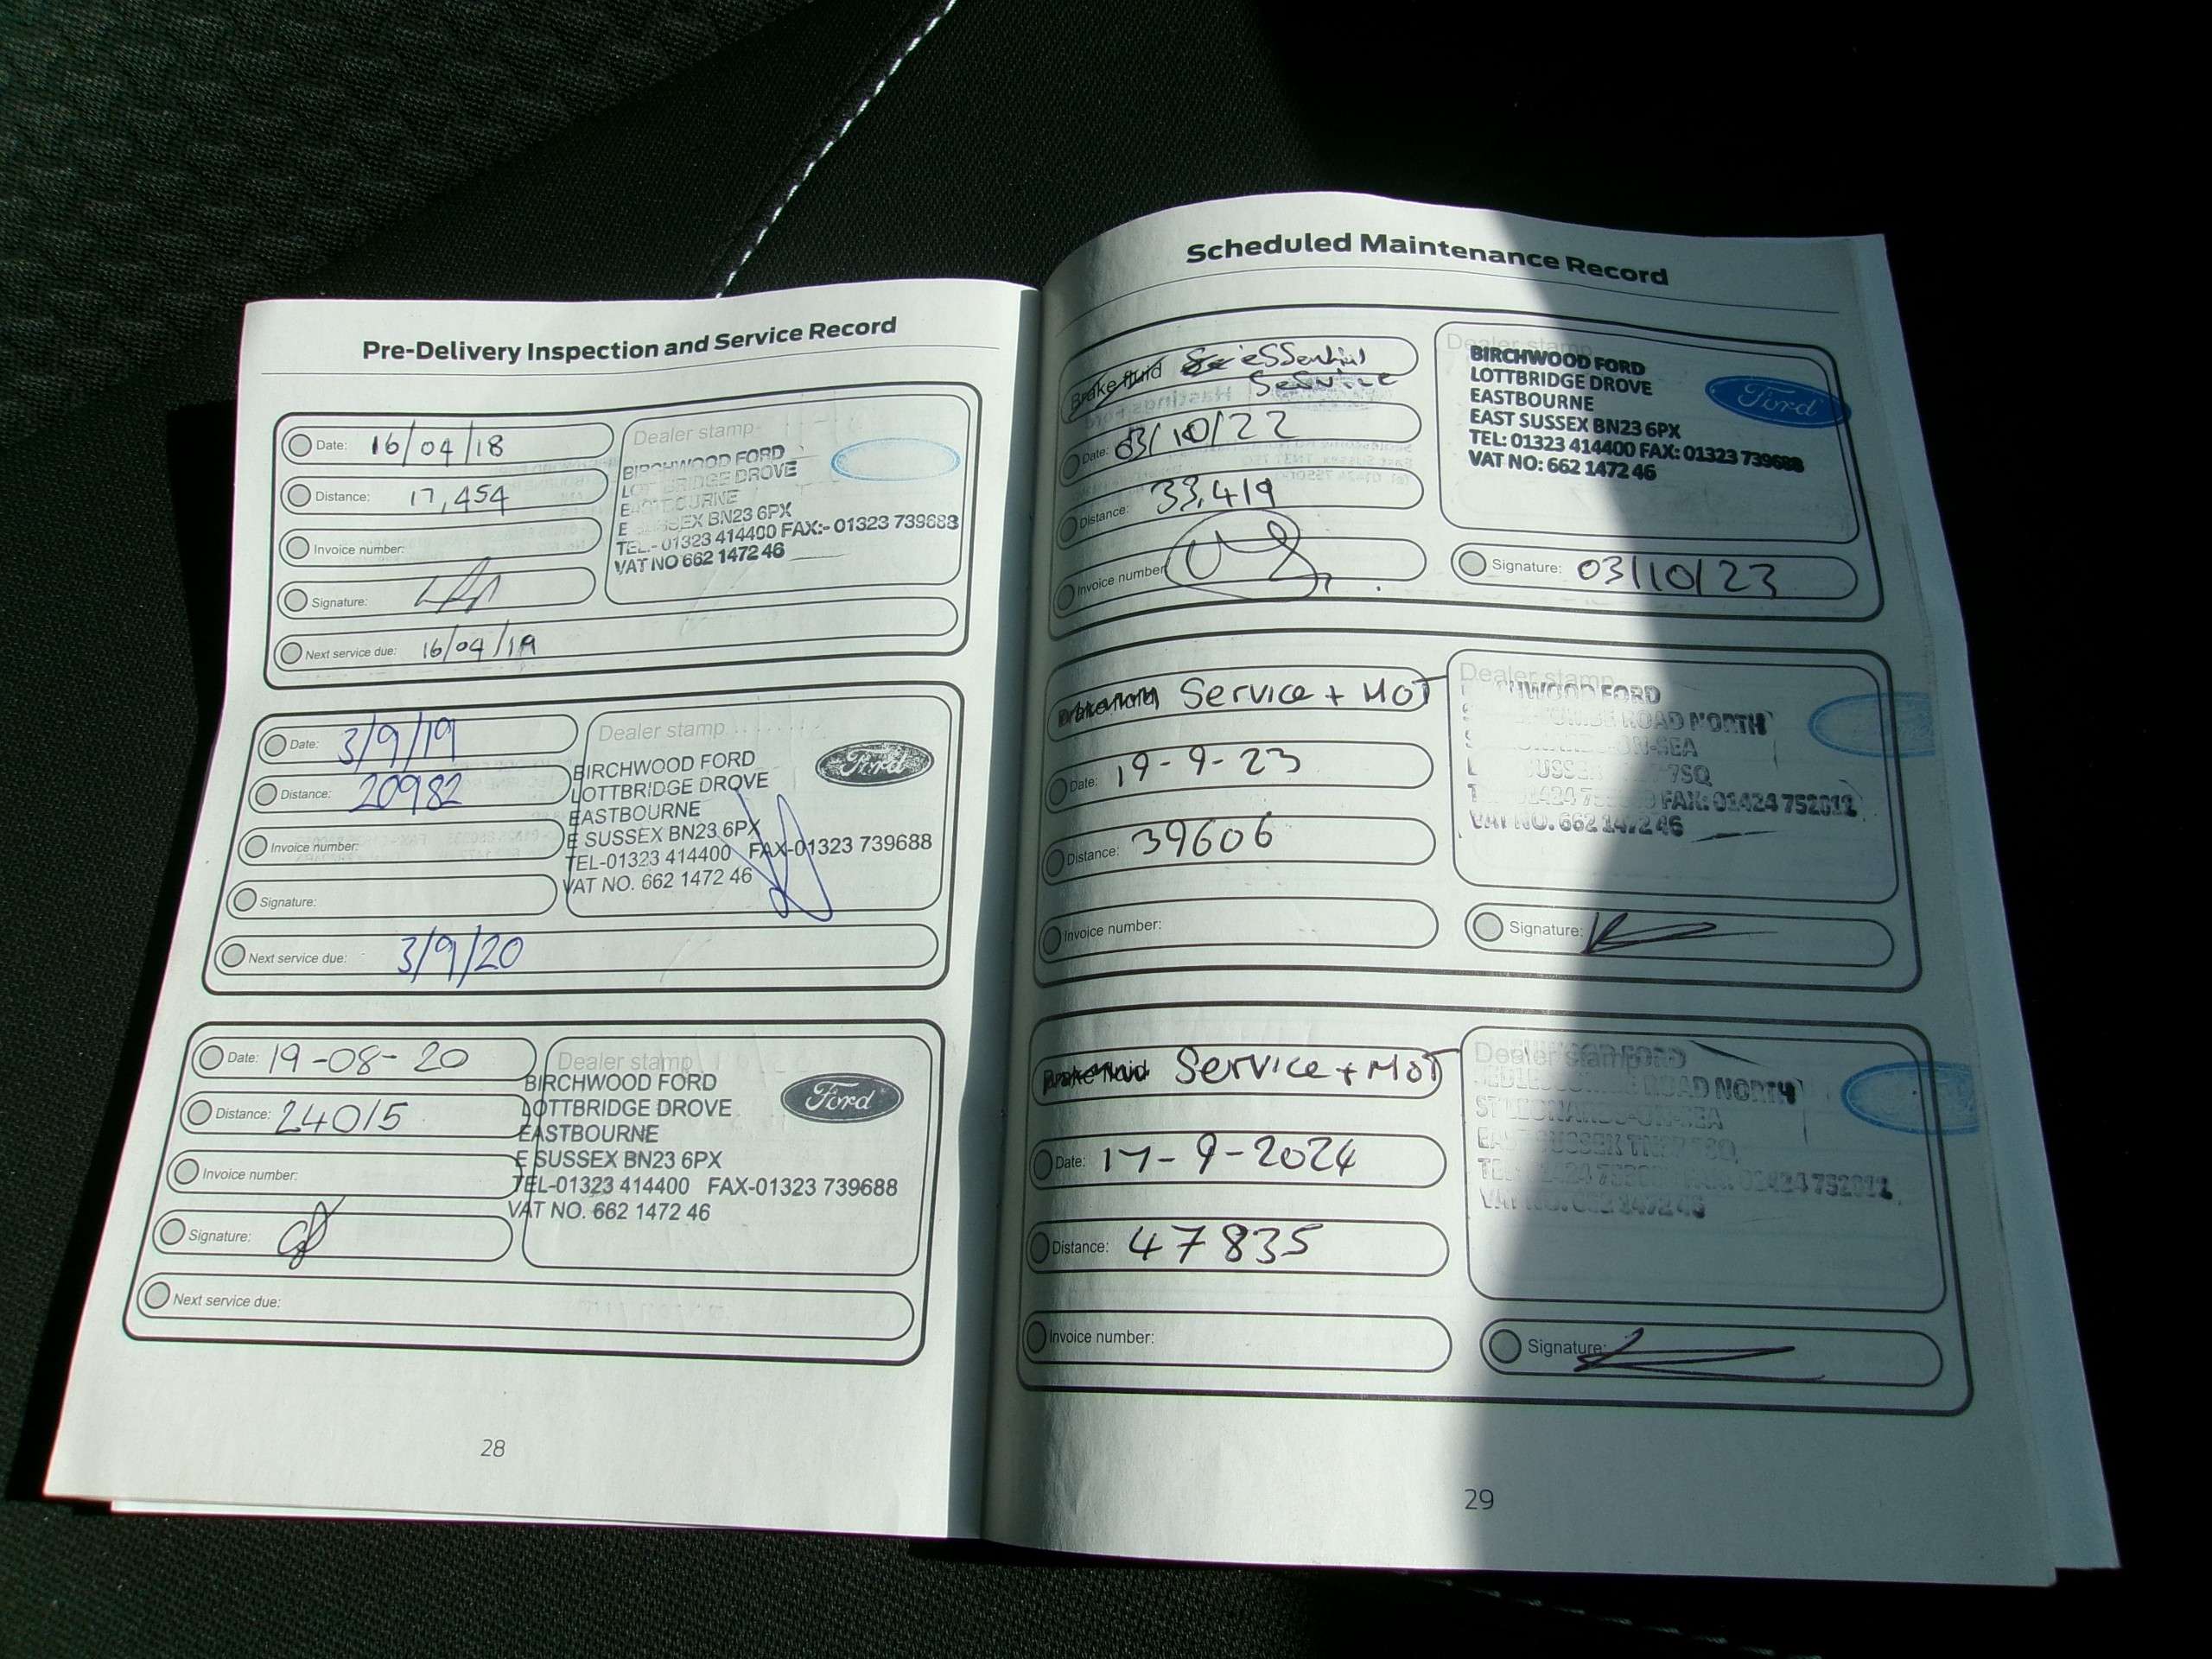 Pre-Delivery Inspection and Service Record
Date: 16/04/18
Distance: 17,454
Invoice number:
Signature:
Next service due: 16/04/19
Dealer stamp
BIRCHWOOD FORD
LOTTBRIDGE DROVE
EASTBOURNE
E SUSSEX BN23 6PX
TEL:- 01323 414400 FAX:- 01323 739688
VAT NO 662 1472 46
Date: 3/9/19
Distance: 20982
Invoice number:
Signature:
Next service due: 3/9/20
Dealer stamp
Ford
BIRCHWOOD FORD
LOTTBRIDGE DROVE
EASTBOURNE
E SUSSEX BN23 6PX
TEL-01323 414400 FAX-01323 739688
VAT NO. 662 1472 46
Date: 19-08-20
Distance: 24015
Invoice number:
Signature:
Next service due:
Dealer stamp
Ford
BIRCHWOOD FORD
LOTTBRIDGE DROVE
EASTBOURNE
E SUSSEX BN23 6PX
TEL-01323 414400 FAX-01323 739688
VAT NO. 662 1472 46
28
Scheduled Maintenance Record
Brake fluid essential
Service
Date: 03/10/22
Distance: 33,419
Invoice number
Dealer stamp
BIRCHWOOD FORD
LOTTBRIDGE DROVE
EASTBOURNE
EAST SUSSEX BN23 6PX
TEL: 01323 414400 FAX: 01323 739688
VAT NO: 662 1472 46
Ford
Signature: 03/10/23
Service + MOT
Date: 19-9-23
Distance: 39606
Invoice number:
Dealer stamp
FORD
ROAD NORTH
FAX: 01424 752012
VAT NO. 662 1472 46
Signature:
Brake fluid Service + MOT
Date: 17-9-2024
Distance: 47835
Invoice number:
Dealer stamp
FORD
ROAD NORTH
ST LEONARDS-ON-SEA
EAST SUSSEX
01424 752012
VAT NO. 662 1472 46
Signature:
29